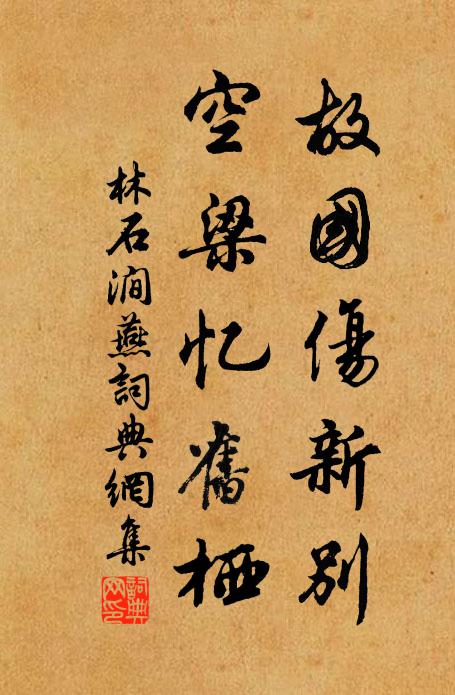 故國傷新别
空梁忆舊栖
林石澗燕詞典網集
詞典網印